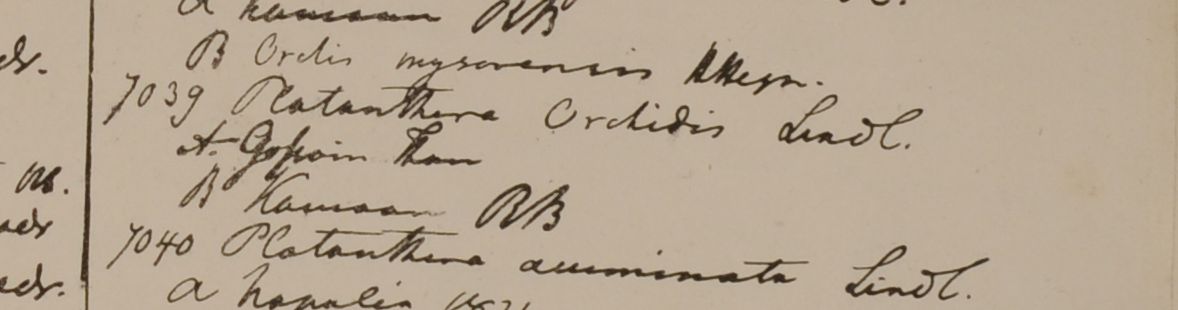 a Kamaon RB
B Orchis mysorensis HHeyn.
7039 Platanthera Orchidis Lindl.
A Gossain Than
B Kamaon RB
7040 Platanthera acuminata Lindl.
a Napalia 1821